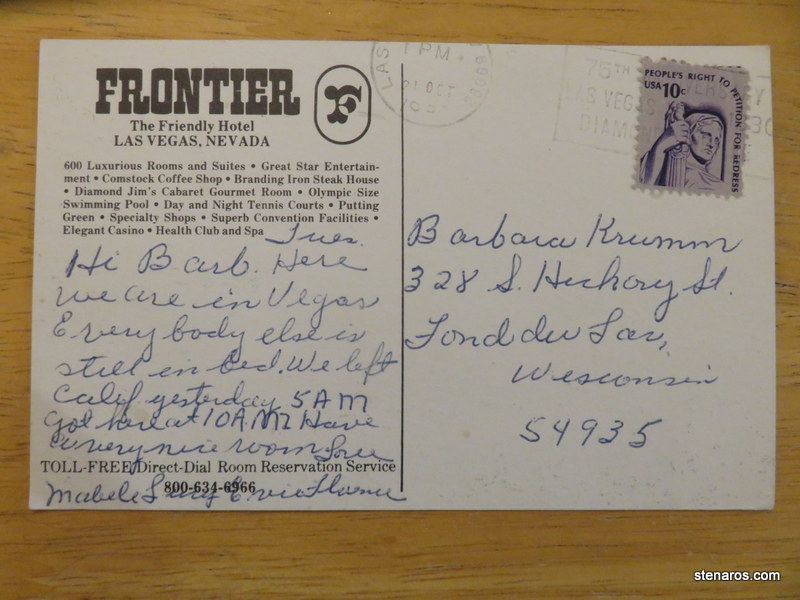 FRONTIER
The Friendly Hotel
LAS VEGAS, NEVADA
600 Luxurious Rooms and Suites • Great Star Entertain-
ment • Comstock Coffee Shop • Branding Iron Steak House
• Diamond Jim's Cabaret Gourmet Room • Olympic Size
Swimming Pool • Day and Night Tennis Courts • Putting
Green • Specialty Shops • Superb Convention Facilities •
Elegant Casino • Health Club and Spa
Tues.
Hi Barb. Here
we are in Vegas
Everybody else is
still in bed. We left
Calif yesterday 5AM
Got here at 10 A.M. Have
a very nice room Love
TOLL-FREE/Direct-Dial Room Reservation Service
800-634-6966
Mabel
LAS
PM
21 OCT
75TH
LAS VEGAS
PEOPLE'S RIGHT TO PETITION FOR REDRESS
USA 10c
Barbara Krumm
328 S. Hickory St.
Fond du Lac,
Wisconsin
54935
stenaros.com